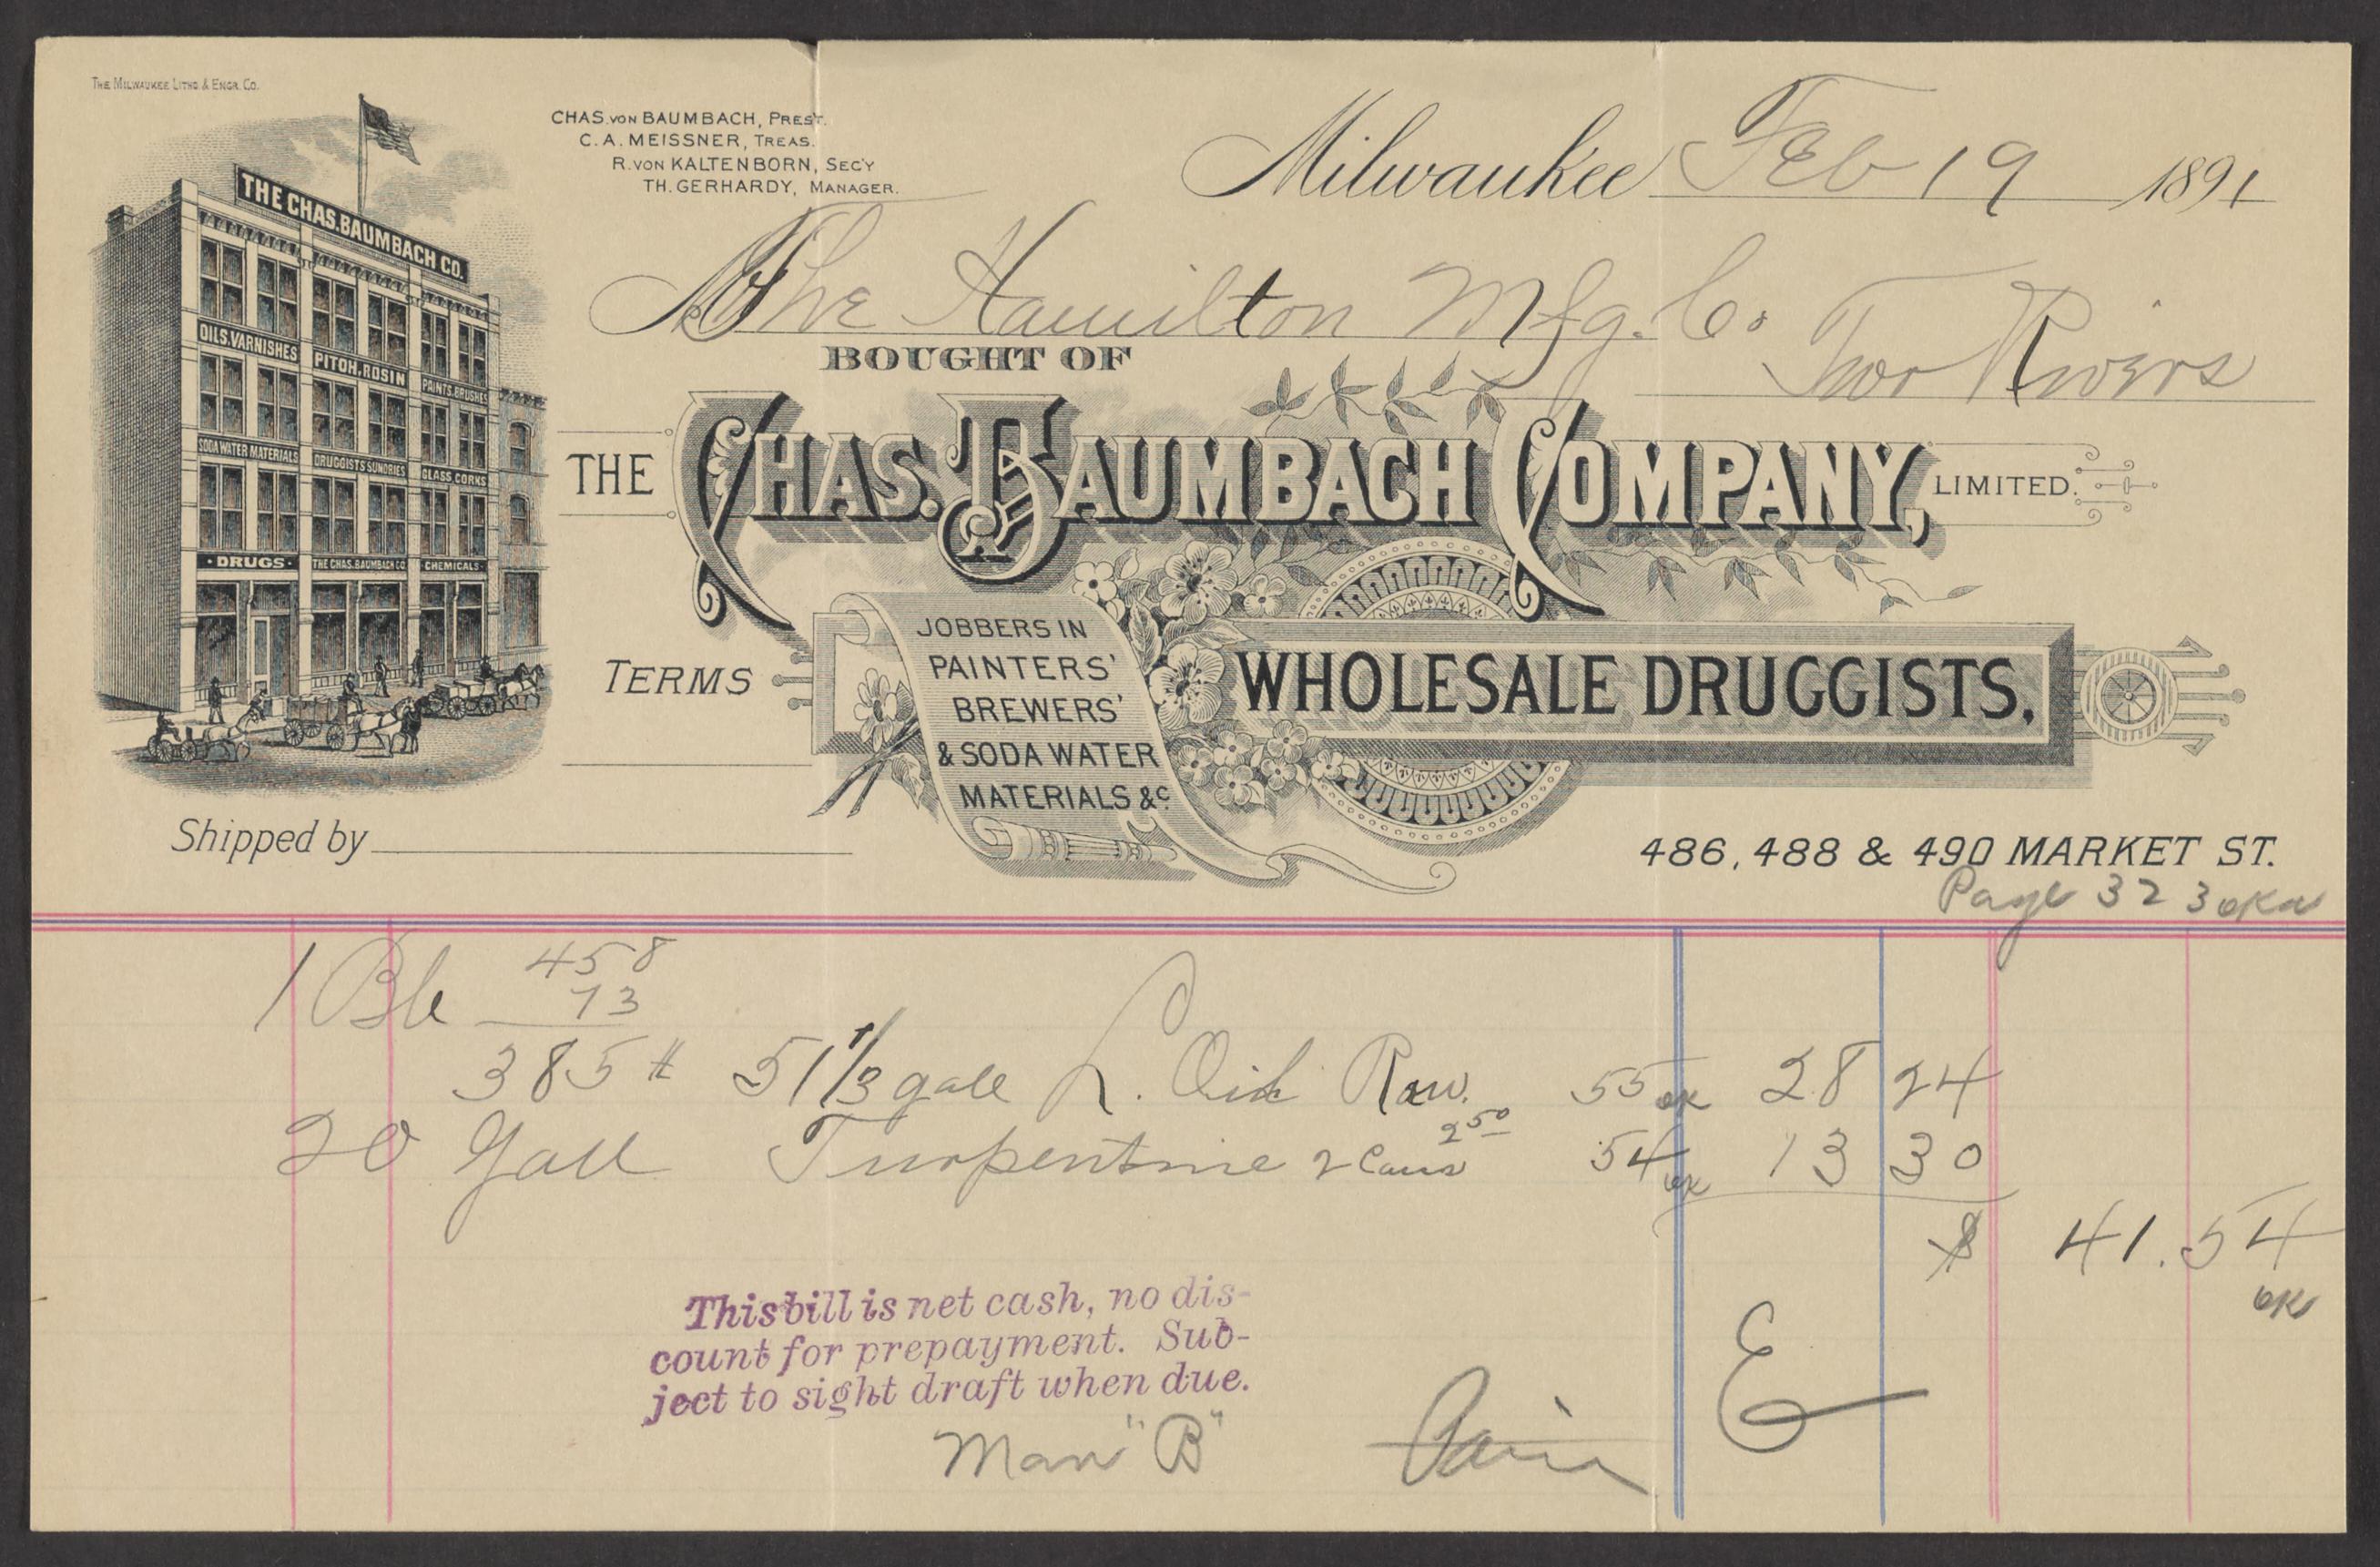 THE MILWAUKEE LITHO. & ENGR. CO.
CHAS. VON BAUMBACH, PREST.
C. A. MEISSNER, TREAS.
R. VON KALTENBORN, SEC'Y
TH. GERHARDY, MANAGER.
Milwaukee Feb 19 1891
The Hamilton Mfg. Co.
Two Rivers
BOUGHT OF
THE CHAS. BAUMBACH COMPANY, LIMITED.
WHOLESALE DRUGGISTS,
JOBBERS IN
PAINTERS'
BREWERS'
& SODA WATER
MATERIALS &c
TERMS
THE CHAS. BAUMBACH CO.
OILS. VARNISHES
PITCH. ROSIN
PAINTS. BRUSHES
SODA WATER MATERIALS
DRUGGISTS SUNDRIES
GLASS. CORKS
· DRUGS ·
THE CHAS. BAUMBACH CO.
· CHEMICALS ·
Shipped by
486, 488 & 490 MARKET ST.
Page 323 ok
1 Bbl 458
73
385 # 51 1/3 gall L. Oil Raw. 55 ok 28 24
20 Gall Turpentine 2 Cans 2 50 54 ok 13 30
$ 41.54
ok
This bill is net cash, no dis-
count for prepayment. Sub-
ject to sight draft when due.
E
Man "B"